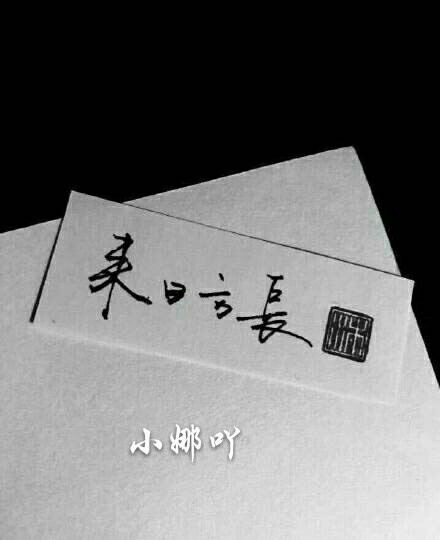 来日方長
小娜吖